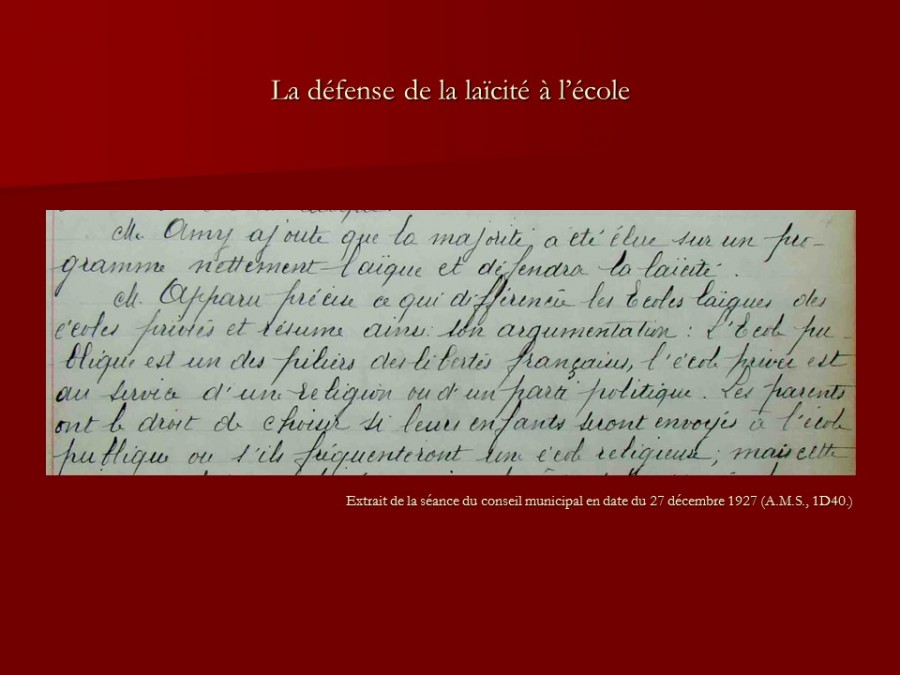 La défense de la laïcité à l'école
M. Amy ajoute que la majorité a été élue sur un pro-
gramme nettement laïque et défendra la laïcité.
M. Apparu précise ce qui différencie les Ecoles laïques des
écoles privées et résume ainsi son argumentation : L'Ecole pu-
blique est un des piliers des libertés françaises, l'école privée est
au service d'une religion ou d'un parti politique. Les parents
ont le droit de choisir si leurs enfants seront envoyés à l'école
publique ou s'ils fréquenteront une école religieuse ; mais cette
Extrait de la séance du conseil municipal en date du 27 décembre 1927 (A.M.S., 1D40.)